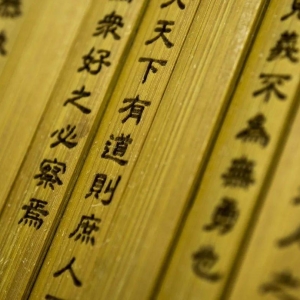 義不為無勇也
天下有道則庶人
眾好之必察焉